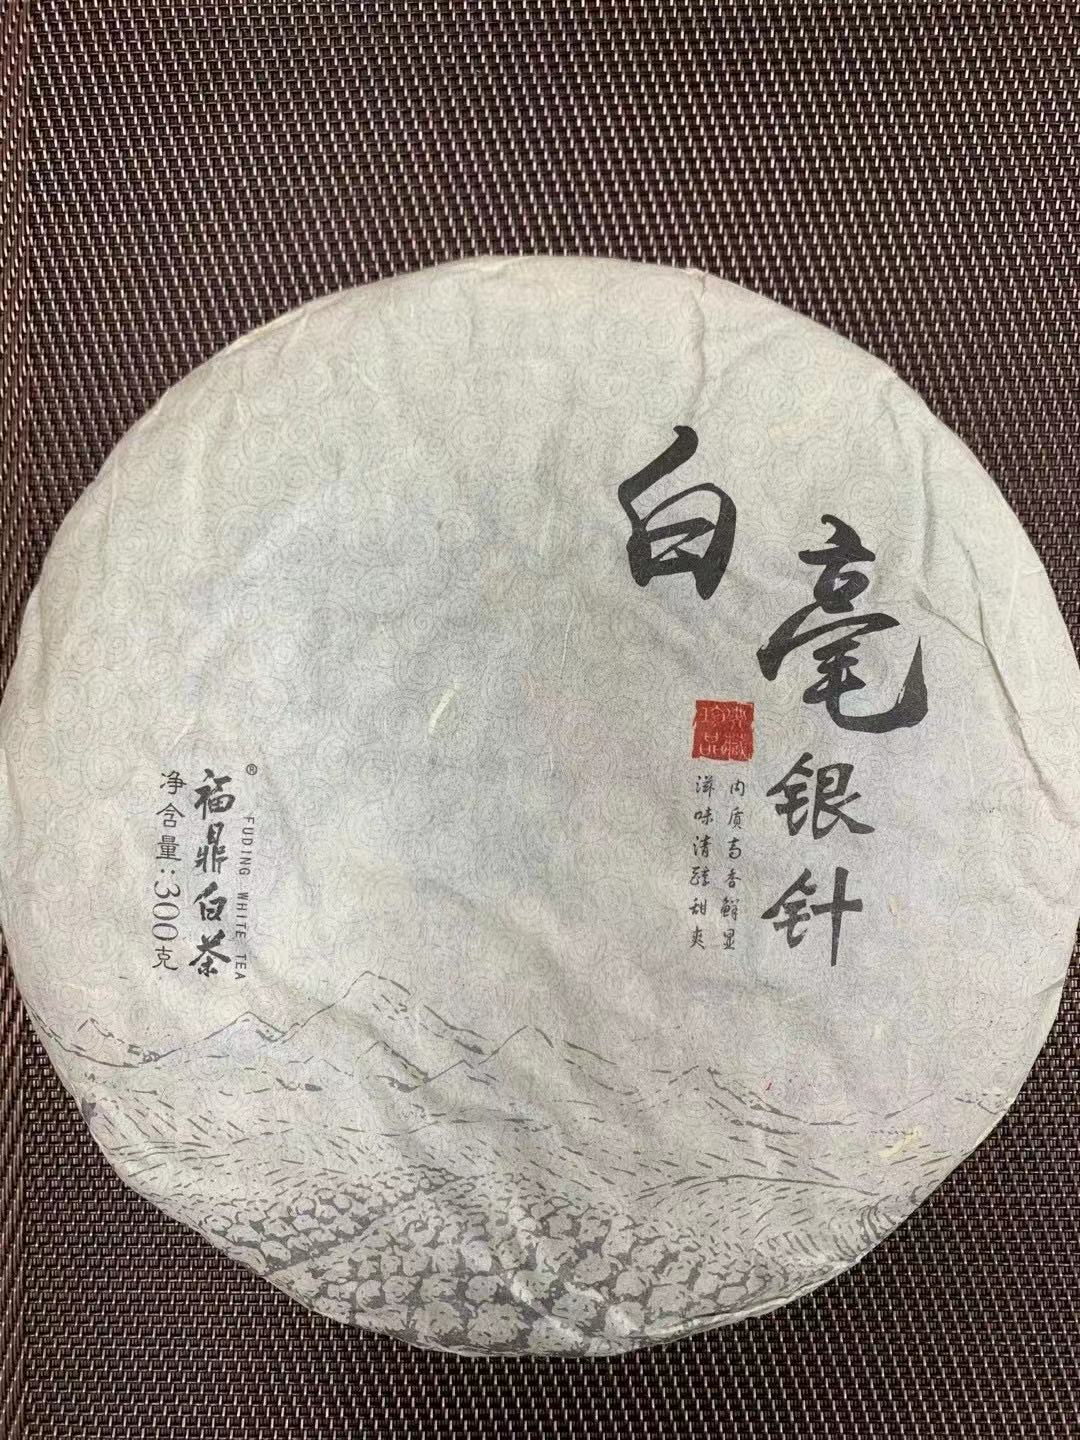 白毫银针
典藏
珍品
内质高香鲜显
滋味清醇甜爽
®
FUDING WHITE TEA
福鼎白茶
净含量:300克